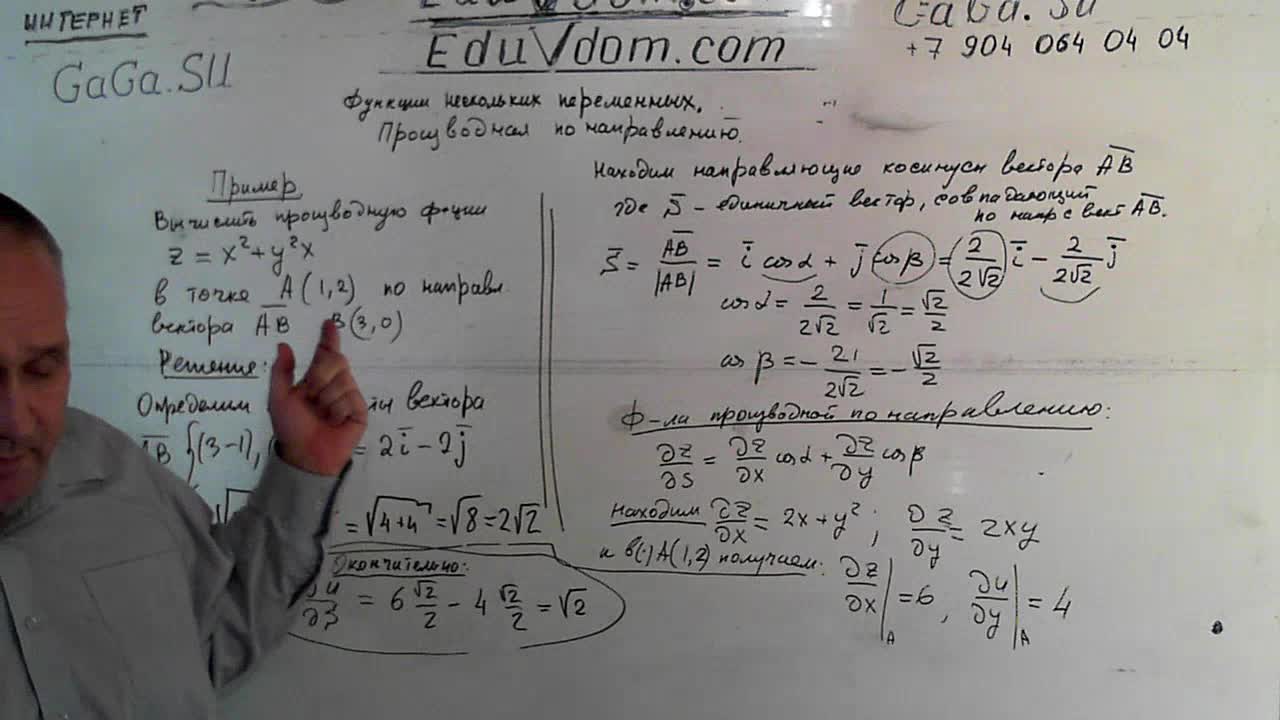 ИНТЕРНЕТ
GaGa.SU
EduVdom.com
GaGa.SU
+7 904 064 04 04
Функции нескольких переменных.
Производная по направлению.
Пример.
Вычислить производную ф-ции
z = x² + y²x
в точке A(1,2) по направл.
вектора AB̅ B(3,0)
Решение:
Определим вектора
AB̅ {(3-1), = 2i̅ - 2j̅
= √(4+4) = √8 = 2√2
Окончательно:
= 6 √2/2 - 4 √2/2 = √2
Находим направляющие косинусы вектора AB̅
где S̅ - единичный вектор, совпадающий
по напр с вект AB̅.
S̅ = AB̅/|AB| = i̅ cosα + j̅ cosβ = 2/(2√2) i̅ - 2/(2√2) j̅
cosα = 2/(2√2) = 1/√2 = √2/2
cos β = - 21/(2√2) = - √2/2
Ф-ла производной по направлению:
∂z/∂s = ∂z/∂x cosα + ∂z/∂y cosβ
Находим ∂z/∂x = 2x + y² ; ∂z/∂y = 2xy
и в(·)A(1,2) получаем:
∂z/∂x|A = 6, ∂u/∂y|A = 4